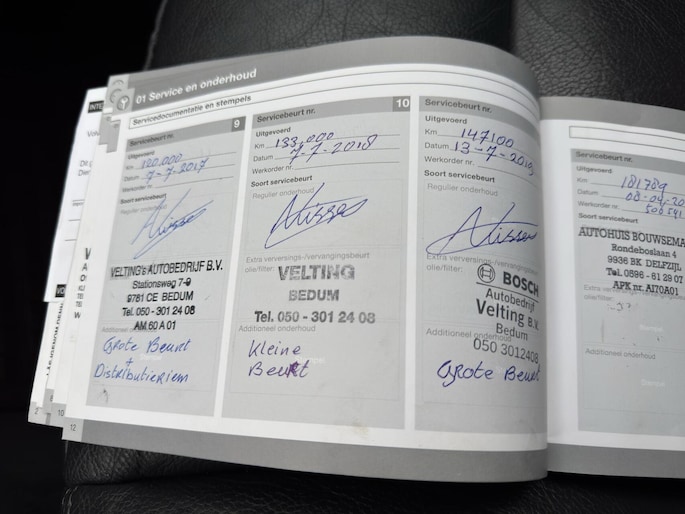 01 Service en onderhoud
Servicedocumentatie en stempels
Servicebeurt nr. 9
Uitgevoerd
Km 120.000
Datum 7-7-2017
Werkorder nr.
Soort servicebeurt
Regulier onderhoud
VELTING's AUTOBEDRIJF B.V.
Stationsweg 7-9
9781 CE BEDUM
Tel. 050 - 301 24 08
AM 60 A 01
Additioneel onderhoud
Grote Beurt
+
Distributieriem
12
Servicebeurt nr. 10
Uitgevoerd
Km 133,000
Datum 7-7-2018
Werkorder nr.
Soort servicebeurt
Regulier onderhoud
Extra verversings-/vervangingsbeurt
olie/filter:
VELTING
BEDUM
Tel. 050 - 301 24 08
Additioneel onderhoud
Kleine
Beurt
Servicebeurt nr.
Uitgevoerd
Km 147100
Datum 13-7-2019
Werkorder nr.
Soort servicebeurt
Regulier onderhoud
Extra verversings-/vervangingsbeurt
olie/filter:
BOSCH
Autobedrijf
Velting B.V.
Bedum
050 3012408
Additioneel onderhoud
Grote Beurt
Servicebeurt nr.
Uitgevoerd
Km 181789
Datum 08-04-20
Werkorder nr. 506541
Soort servicebeurt
AUTOHUIS BOUWSEMA
Rondeboslaan 4
9936 BK DELFZIJL
Tel. 0596 - 61 29 07
APK nr. AI70A01
olie/filter:
Additioneel onderhoud